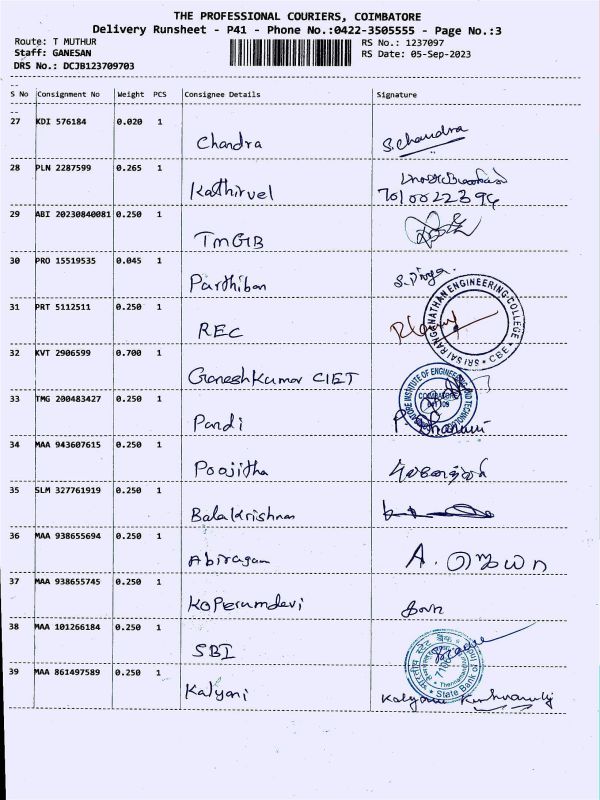 THE PROFESSIONAL COURIERS, COIMBATORE
Delivery Runsheet - P41 - Phone No.:0422-3505555 - Page No.:3
Route: T MUTHUR
RS No.: 1237097
Staff: GANESAN
RS Date: 05-Sep-2023
DRS No.: DCJB123709703
S No Consignment No Weight PCS Consignee Details Signature
27 KDI 576184 0.020 1
Chandra S. Chandra
28 PLN 2287599 0.265 1
Kathirvel
7010022396
29 ABI 20230840081 0.250 1
TMGB
30 PRO 15519535 0.045 1
Parthiban S. Divya.
31 PRT 5112511 0.250 1
REC
SRI SAI RANGANATHAN ENGINEERING COLLEGE * CBE *
32 KVT 2906599 0.700 1
Ganesh Kumar CIET
33 TMG 200483427 0.250 1
INSTITUTE OF ENGINEERING AND TECHNOLOGY
Pandi
34 MAA 943607615 0.250 1
Poojitha
35 SLM 327761919 0.250 1
Balakrishnan
36 MAA 938655694 0.250 1
Abiragam A.
37 MAA 938655745 0.250 1
Koperumdevi
38 MAA 101266184 0.250 1
SBI
भारतीय स्टेट बैंक
State Bank of India
39 MAA 861497589 0.250 1
Kalyani